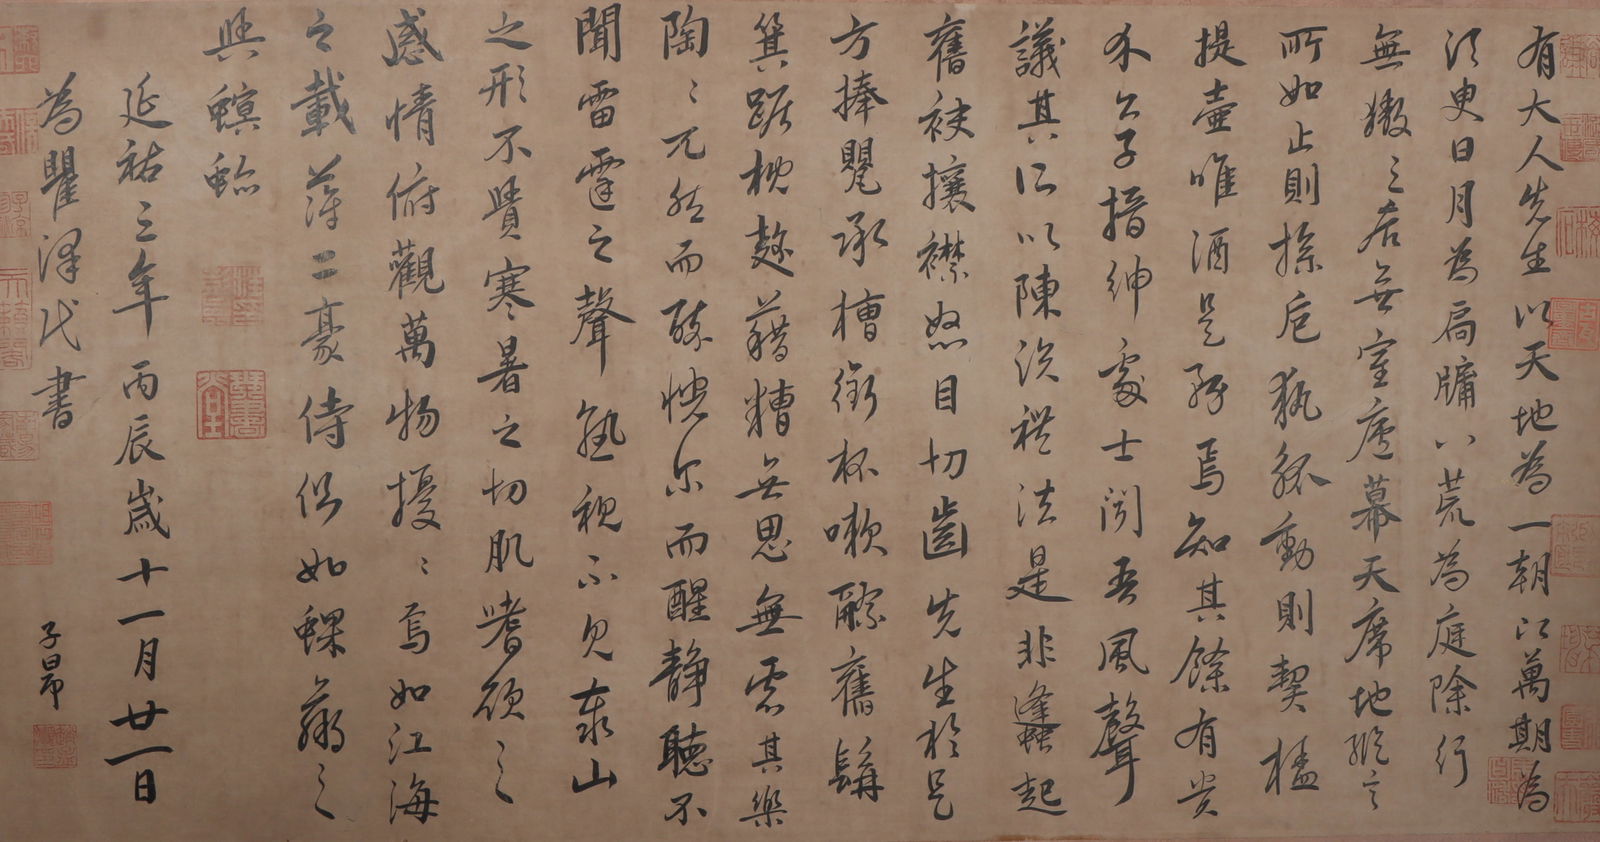 有大人先生以天地為一朝以萬期為
須臾日月為扃牖八荒為庭除行
無轍之居無室廬幕天席地縱意
所如止則操卮執觚動則挈榼
提壺唯酒是務焉知其餘有貴
介公子搢紳處士聞吾風聲
議其所以陳說禮法是非蜂起
奮袂攘襟怒目切齒先生於是
方捧甖承槽銜杯嗽醪奮髯
箕踞枕麴藉糟無思無慮其樂
陶〻兀然而醉怳尔而醒靜聽不
聞雷霆之聲熟視不見泰山
之形不覺寒暑之切肌嗜欲之
感情俯觀萬物擾〻焉如江海
之載萍二豪侍側如蜾蠃之
與螟蛉
延祐三年丙辰歲十一月廿一日
為瞿澤民書
子昂